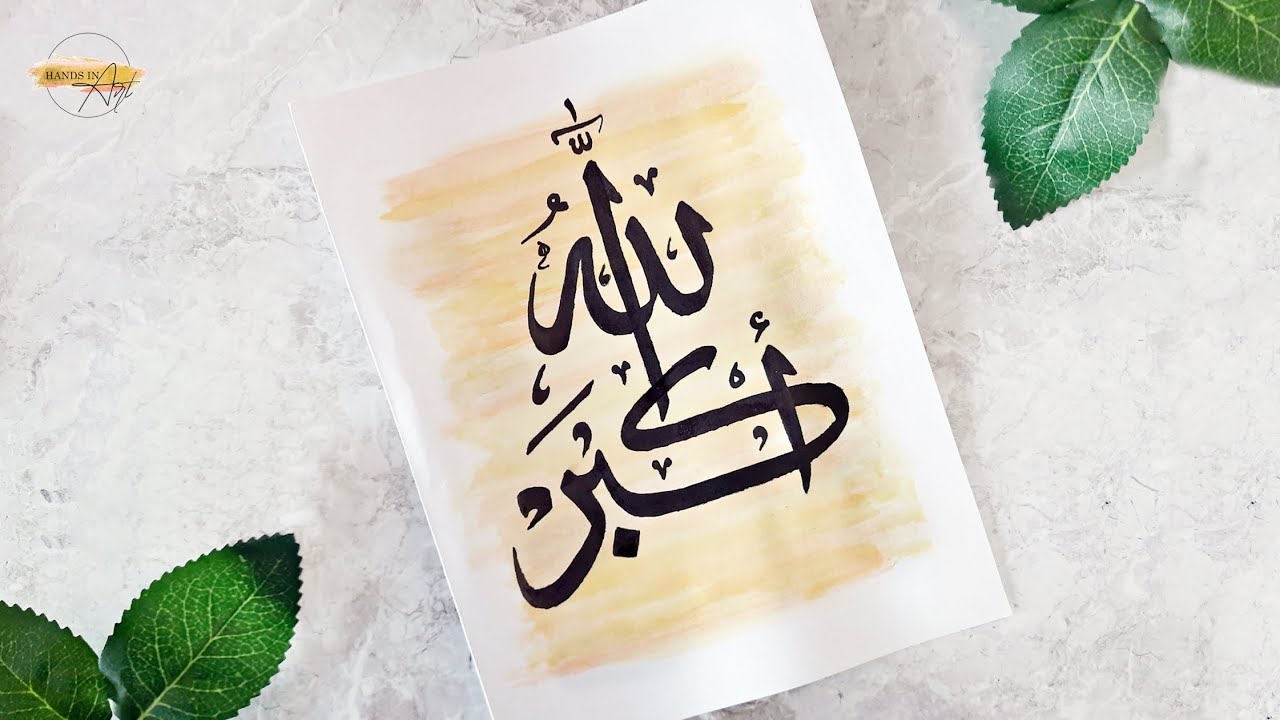 HANDS IN
Art
الله
أكبر